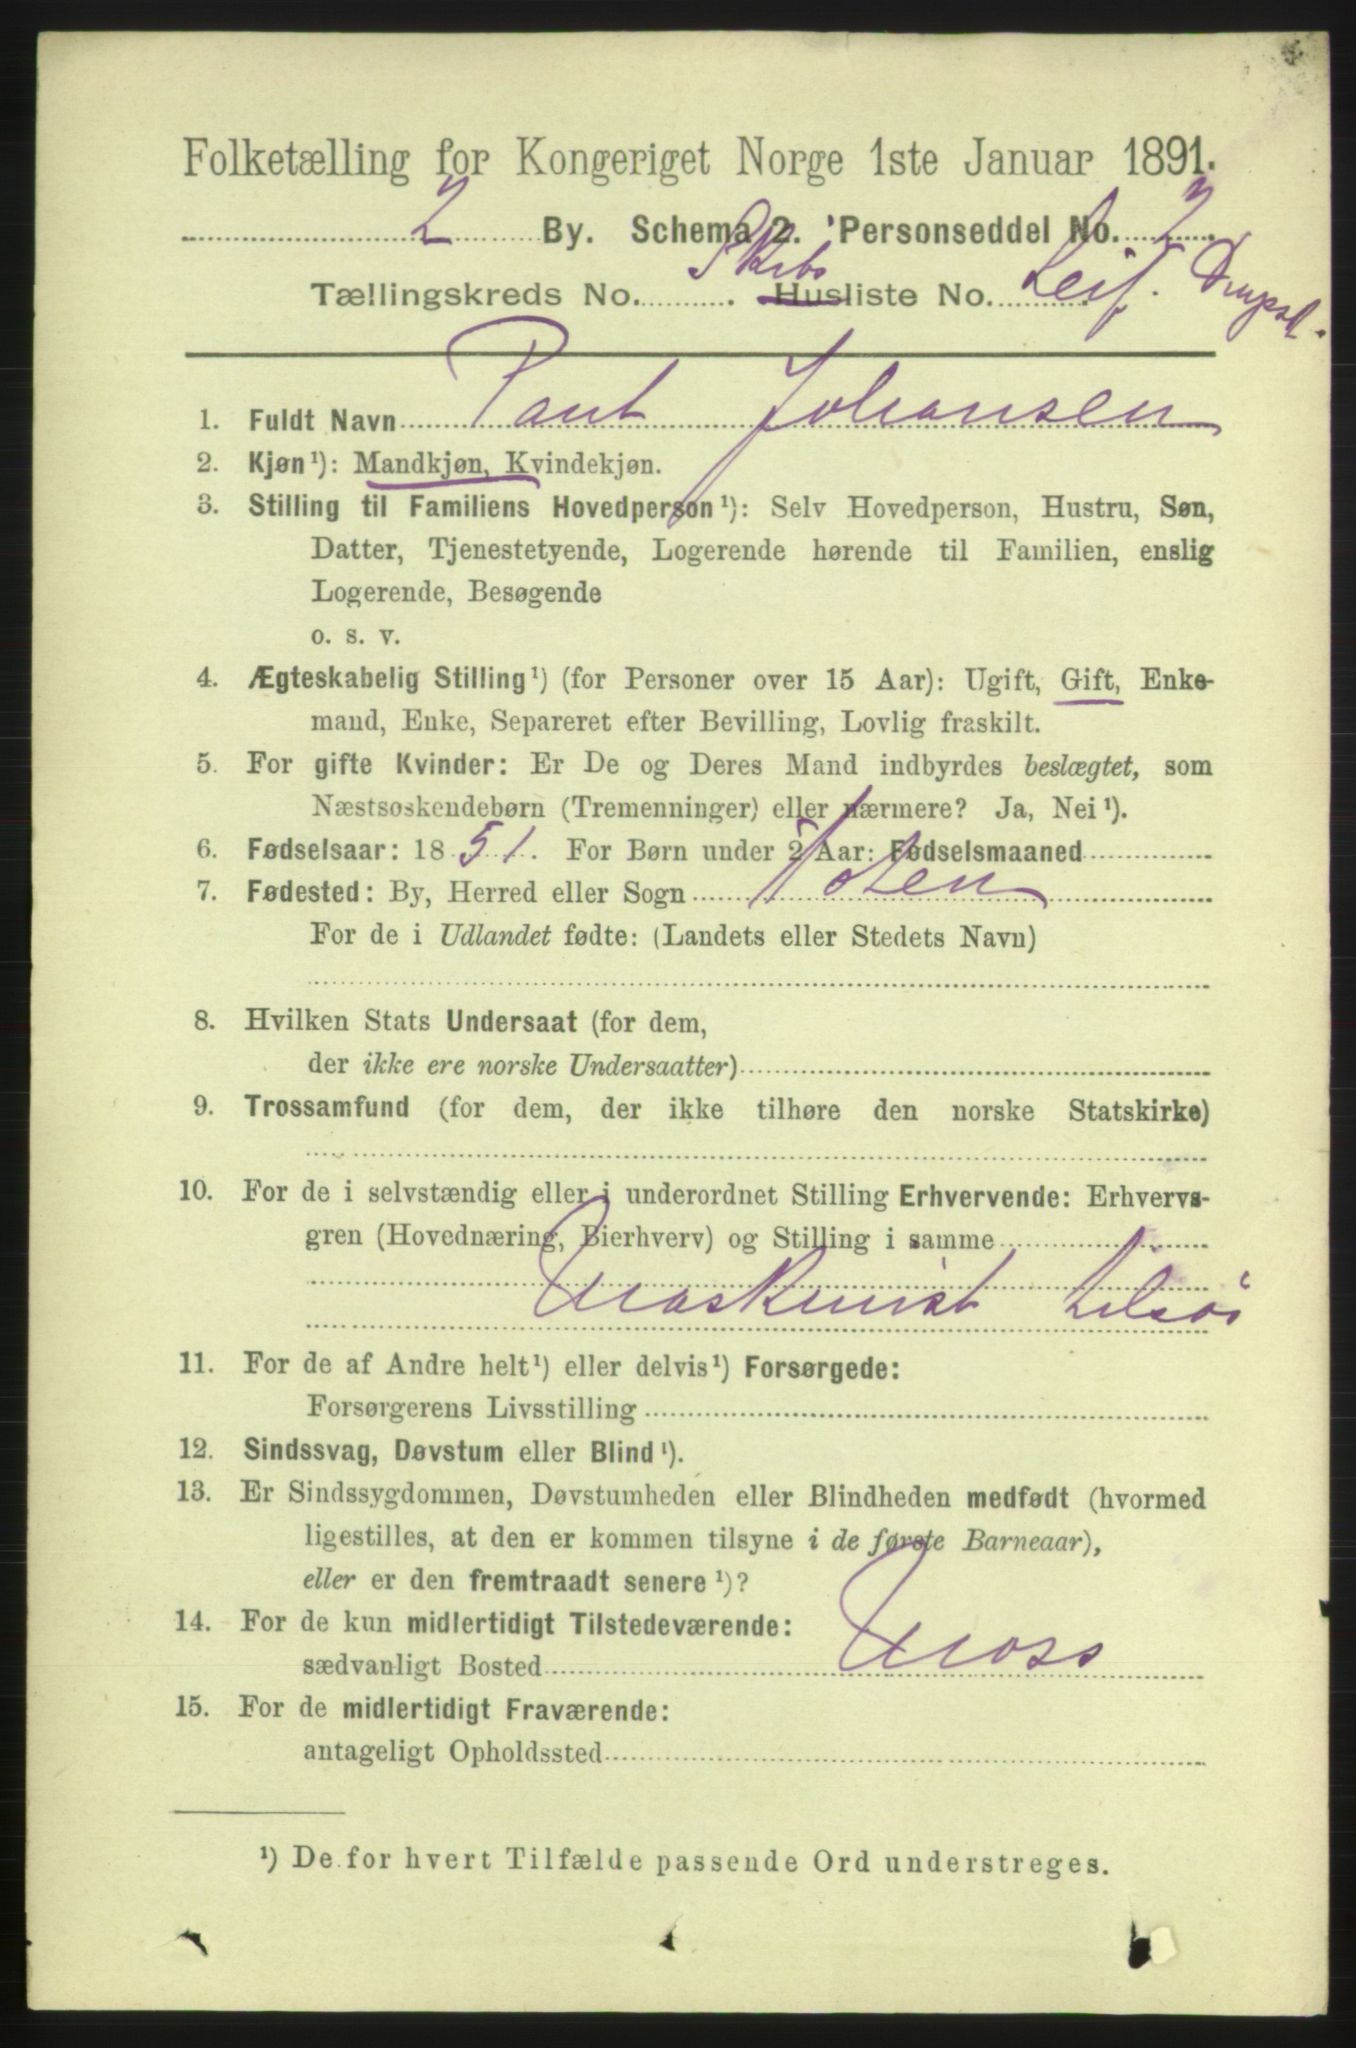 Folketælling for Kongeriget Norge 1ste Januar 1891.
2 By. Schema 2. Personseddel No. 2.
Tællingskreds No. . Skibs Husliste No. Leif. Dampsk.
1. Fuldt Navn Paul Johansen
2. Kjøn¹): Mandkjøn, Kvindekjøn.
3. Stilling til Familiens Hovedperson¹): Selv Hovedperson, Hustru, Søn,
Datter, Tjenestetyende, Logerende hørende til Familien, enslig
Logerende, Besøgende
o. s. v.
4. Ægteskabelig Stilling¹) (for Personer over 15 Aar): Ugift, Gift, Enke-
mand, Enke, Separeret efter Bevilling, Lovlig fraskilt.
5. For gifte Kvinder: Er De og Deres Mand indbyrdes beslægtet, som
Næstsøskendebørn (Tremenninger) eller nærmere? Ja, Nei¹).
6. Fødselsaar: 1851. For Børn under 2 Aar: Fødselsmaaned
7. Fødested: By, Herred eller Sogn Toten
For de i Udlandet fødte: (Landets eller Stedets Navn)
8. Hvilken Stats Undersaat (for dem,
der ikke ere norske Undersaatter)
9. Trossamfund (for dem, der ikke tilhøre den norske Statskirke)
10. For de i selvstændig eller i underordnet Stilling Erhvervende: Erhvervs-
gren (Hovednæring, Bierhverv) og Stilling i samme
Maskinist tilsøs
11. For de af Andre helt¹) eller delvis¹) Forsørgede:
Forsørgerens Livsstilling
12. Sindssvag, Døvstum eller Blind¹).
13. Er Sindssygdommen, Døvstumheden eller Blindheden medfødt (hvormed
ligestilles, at den er kommen tilsyne i de første Barneaar),
eller er den fremtraadt senere¹)?
14. For de kun midlertidigt Tilstedeværende:
sædvanligt Bosted Moss
15. For de midlertidigt Fraværende:
antageligt Opholdssted
¹) De for hvert Tilfælde passende Ord understreges.